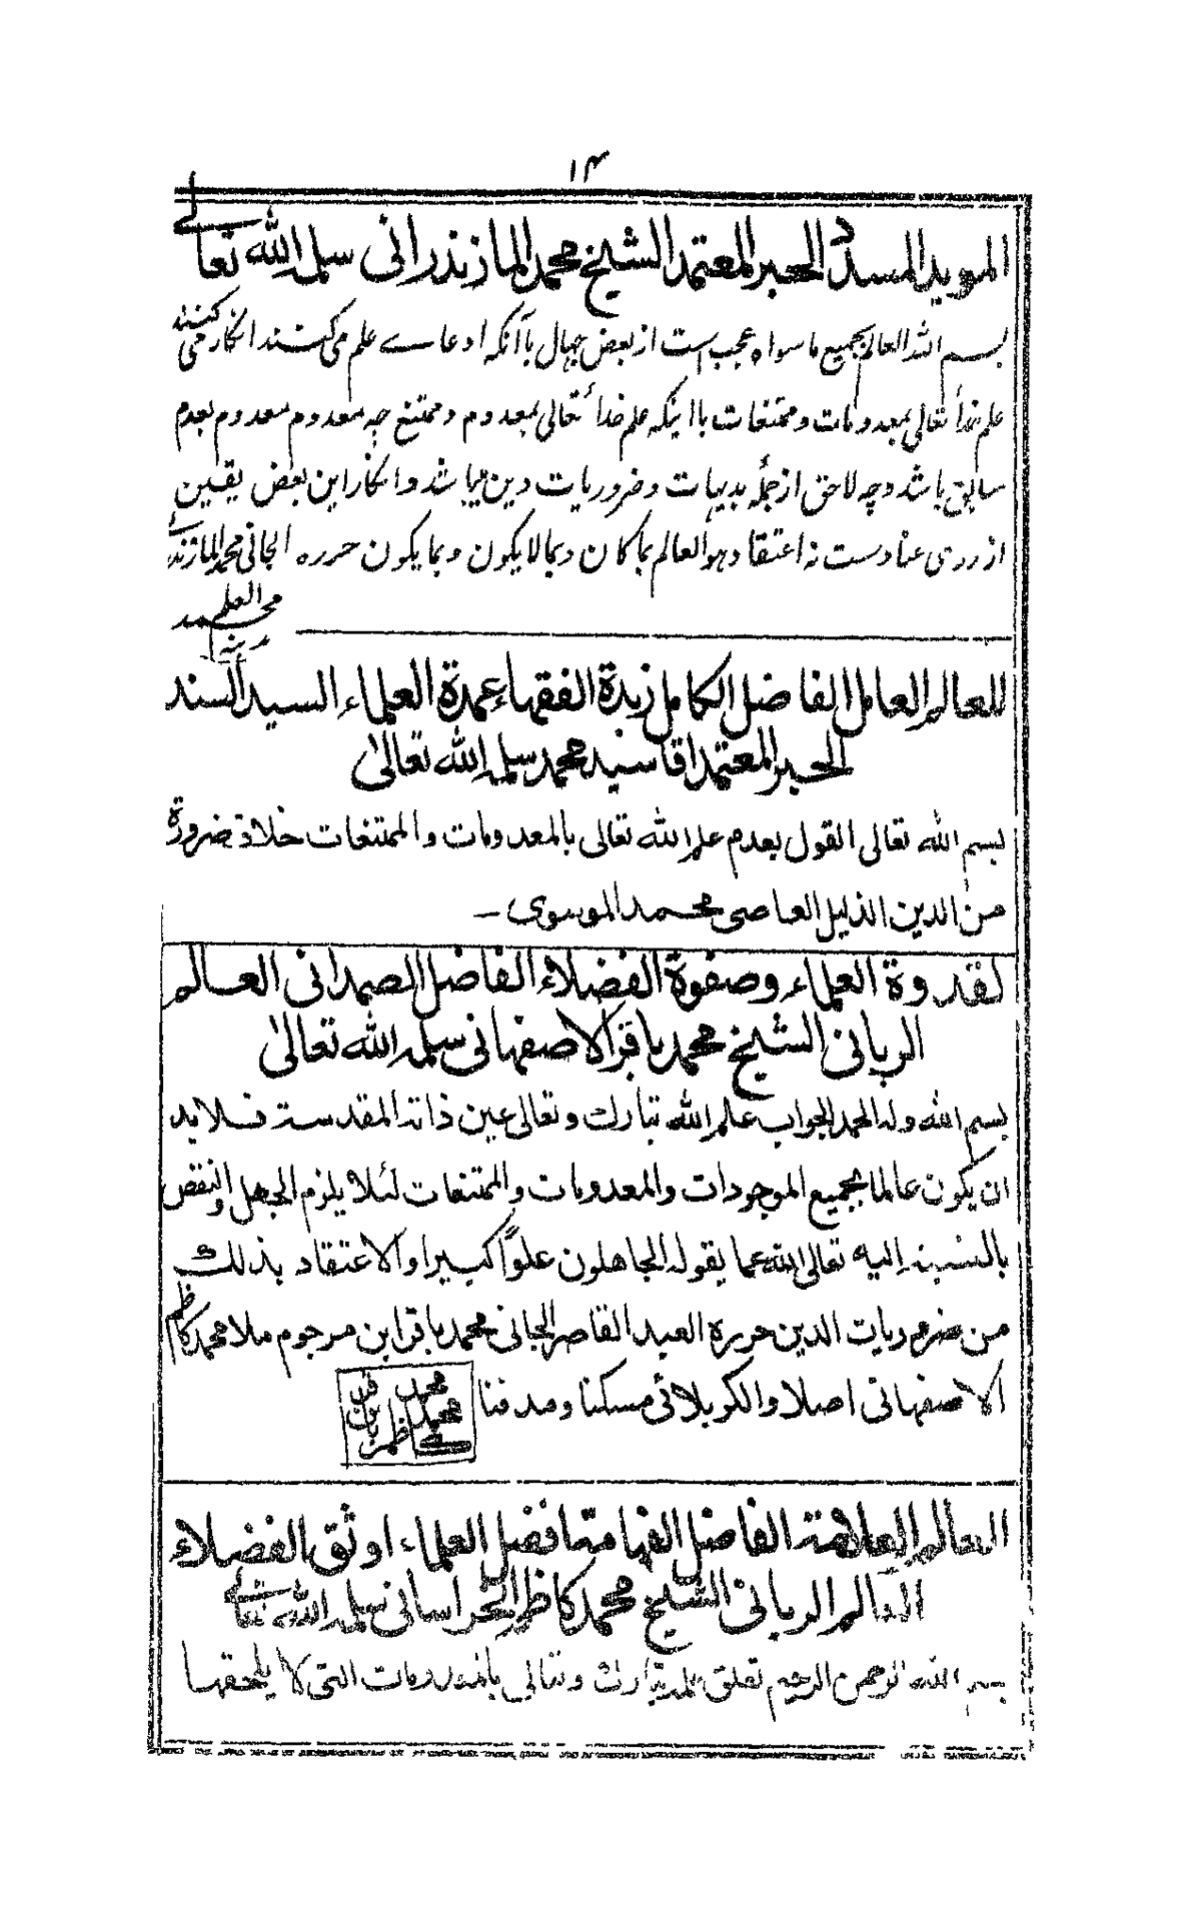 ۱۴
المويد المسدد الحبر المعتمد الشيخ محمد المازندرانى سلمه الله تعالى
بسم الله العالم بجميع ما سواه عجب است از بعض جهال باآنكه ادعاے علم مى كنند انكار مى كنند
علم خدا تعالى بمعدومات وممتنعات بااينكه علم خداۓ تعالى بمعدوم وممتنع چه معدوم معدوم بعدم
سابق باشد وچه لاحق از جمله بديهيات وضروريات دين ميباشد وانكار اين بعض يقين
از روى عنادست نه اعتقاد وهو العالم بما كان وبما لا يكون وبما يكون حرره الجانى محمد المازندرانى
محمد
للعالم العامل الفاضل الكامل زبدة الفقهاء عمدة العلماء السيد السند
الحبر المعتمد اقا سيد محمد سلمه الله تعالى
بسم الله تعالى القول بعدم علم الله تعالى بالمعدومات والممتنعات خلاف ضرورة
من الدين الذليل العاصى محمد الموسوى
لقدوة العلماء وصفوة الفضلاء الفاضل الصمدانى العالم
الربانى الشيخ محمد باقر الاصفهانى سلمه الله تعالى
بسم الله وله الحمد الجواب علم الله تبارك وتعالى عين ذاته المقدسة فلا بد
ان يكون عالما بجميع الموجودات والمعدومات والممتنعات لئلا يلزم الجهل والنقص
بالنسبة اليه تعالى الله عما يقوله الجاهلون علوًا كبيرا والاعتقاد بذلك
من ضروريات الدين حرره العبد القاصر الجانى محمد باقر ابن مرحوم ملا محمد كاظم
الاصفهانى اصلا والكربلائى مسكنا ومدفنا
محمد باقر بن محمد كاظم
العالم العلامة الفاضل الفهامة افضل العلماء اوثق الفضلاء
العالم الربانى الشيخ محمد كاظم الخراسانى سلمه الله تعالى
بسم الله الرحمن الرحيم تعلق علمه تبارك وتعالى بالمعدومات التى لا يلحقها